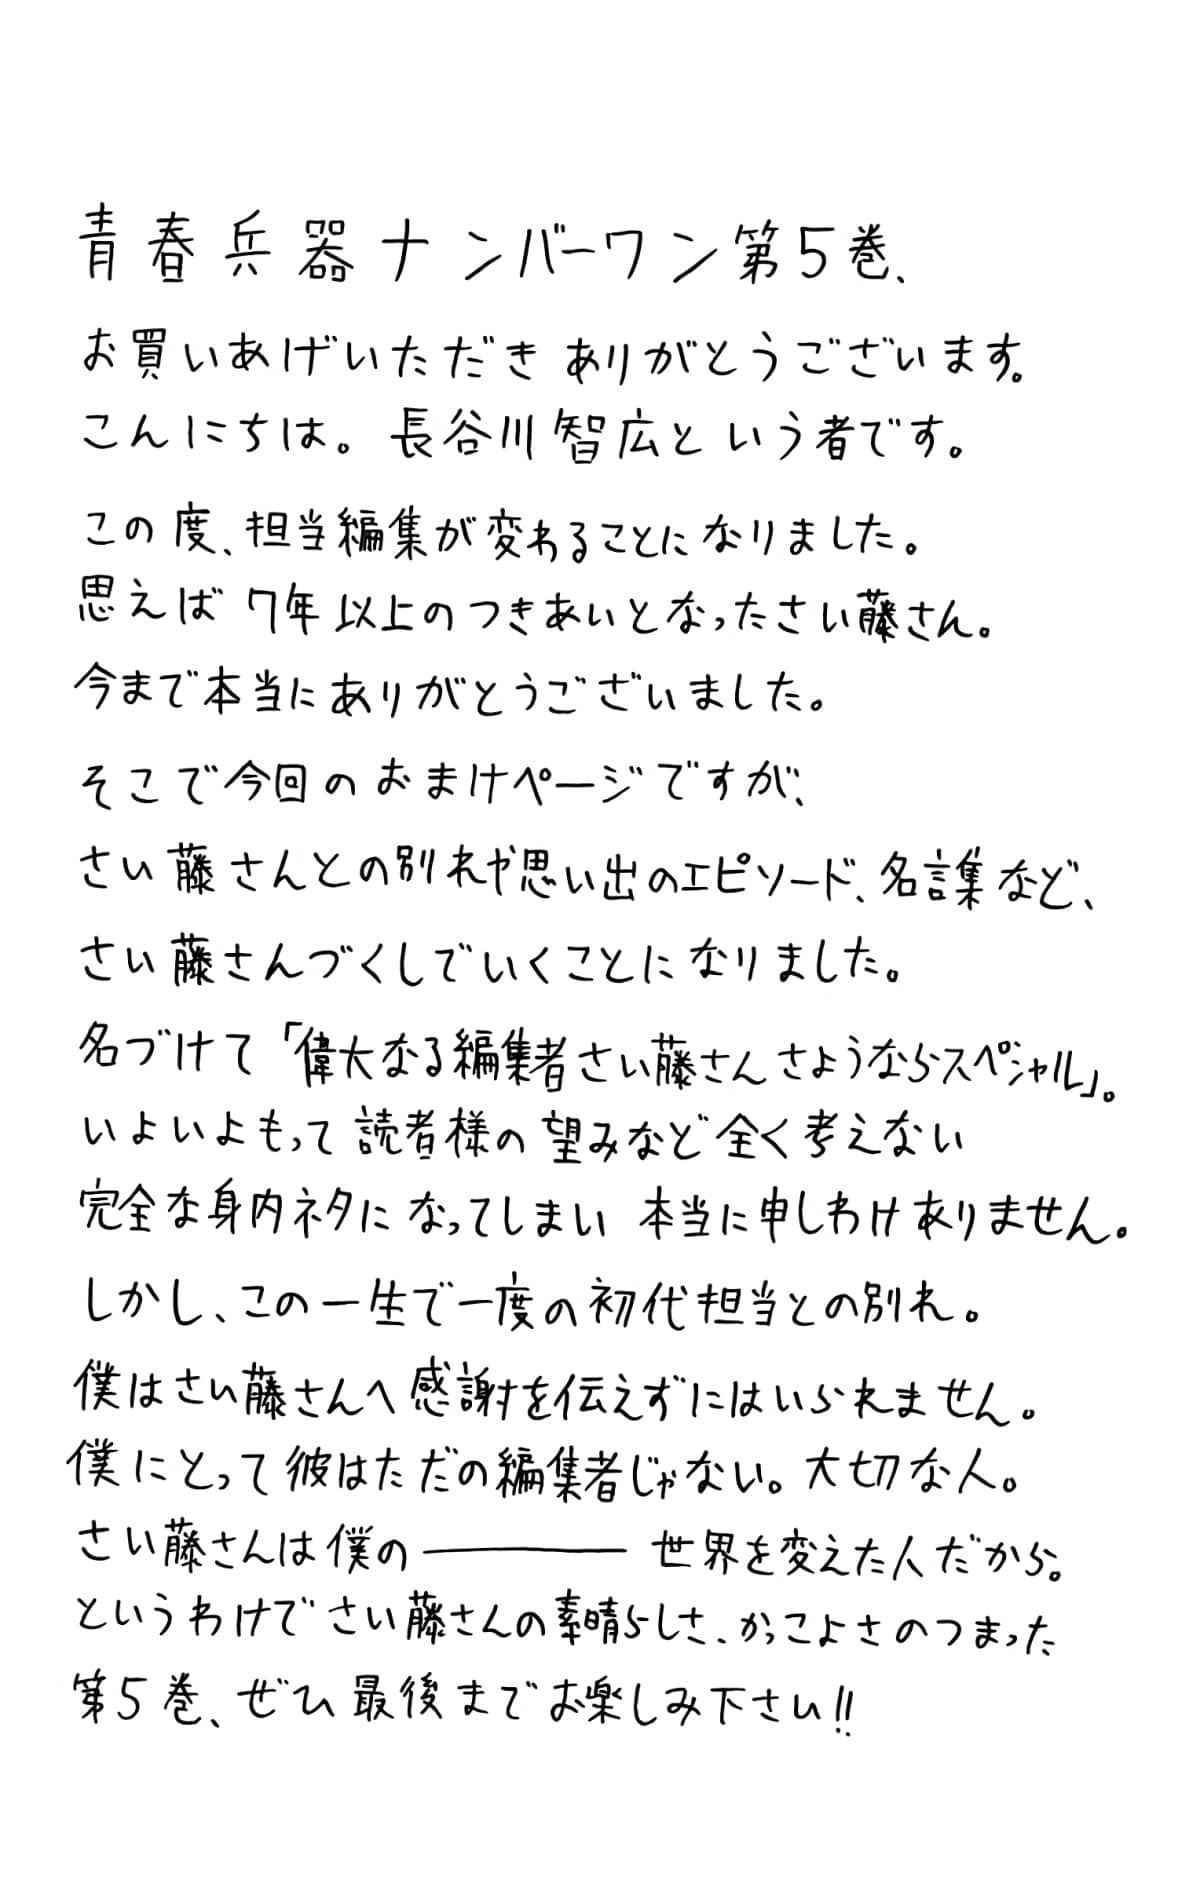 青春兵器ナンバーワン第5巻、
お買いあげいただき ありがとうございます。
こんにちは。長谷川智広という者です。
この度、担当編集が変わることになりました。
思えば 7年以上のつきあいとなったさい藤さん。
今まで本当にありがとうございました。
そこで今回のおまけページですが、
さい藤さんとの別れや思い出のエピソード、名言集など、
さい藤さんづくしでいくことになりました。
名づけて「偉大なる編集者さい藤さんさようならスペシャル」。
いよいよもって読者様の望みなど全く考えない
完全な身内ネタになってしまい 本当に申しわけありません。
しかし、この一生で一度の初代担当との別れ。
僕はさい藤さんへ感謝を伝えずにはいられません。
僕にとって彼はただの編集者じゃない。大切な人。
さい藤さんは僕の――― 世界を変えた人だから。
というわけでさい藤さんの素晴らしさ、かっこよさのつまった
第5巻、ぜひ最後までお楽しみ下さい!!